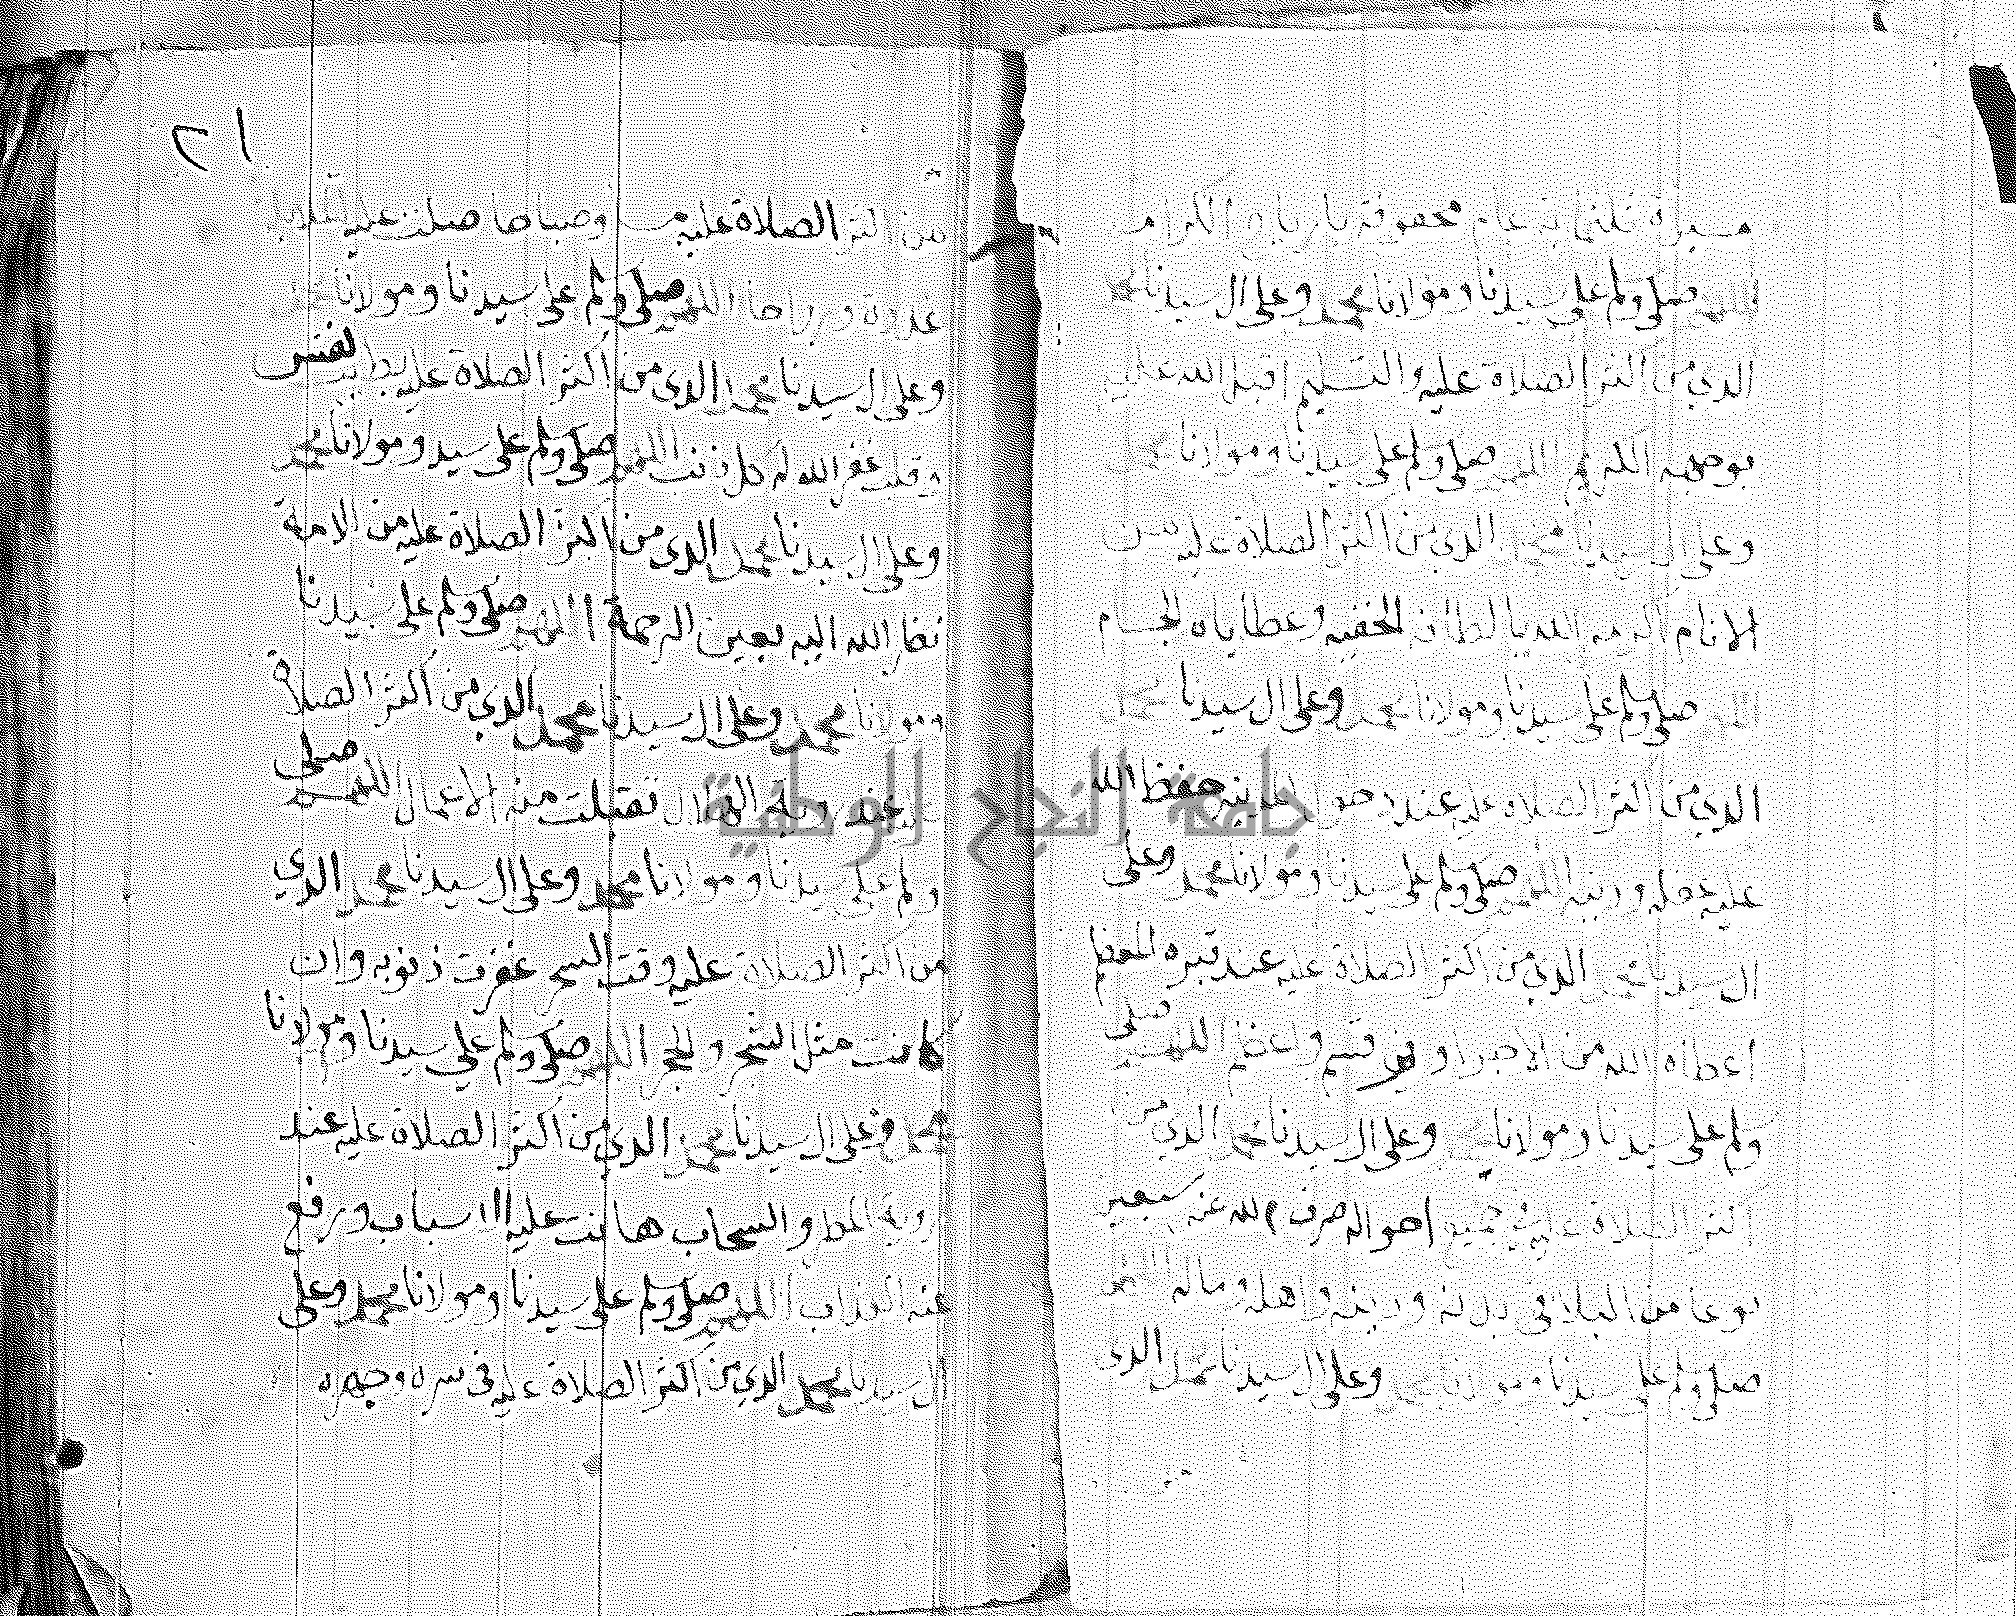 محفوفة
اللهم صلي ولم على سيدنا ومولانا محمد وعلى ال سيدنا محمد
الدي من اكثر الصلاة عليه والتسليم اقبل الله عليه
بوجهه الكريم اللهم صلي ولم على سيدنا ومولانا محمد
وعلى ال سيدنا محمد الدي من اكثر الصلاة عليه من
الانام الله بالطافه الخفيه وعطاياه الجسام
اللهم صلي ولم على سيدنا ومولانا محمد وعلى ال سيدنا محمد
الدي من اكثر الصلاة عليه عند دخول المدينه حفظ الله
عليه عقله ودينه اللهم صلي ولم على سيدنا ومولانا محمد وعلى
ال سيدنا محمد الدي من اكثر الصلاة عليه عند قبره المعظم
اعطاه الله من الاجر اوفر قسم واعظم اللهم صلي
ولم على سيدنا ومولانا محمد وعلى ال سيدنا محمد الدي من
اكثر الصلاة عليه في جميع احواله صرف الله عنه سبعين
نوعا من البلا في بدنه ودينه واهله وماله اللهم
صلي ولم على سيدنا ومولانا محمد وعلى ال سيدنا محمد الدي
٢١
من اكثر الصلاة عليه وصباحا صلت عليه
اللهم صلي ولم على سيدنا ومولانا محمد
وعلى ال سيدنا محمد الدي من اكثر الصلاة عليه نفس
وقلب غفر الله له كل ذنب اللهم صلي ولم على سيد ومولانا محمد
وعلى ال سيدنا محمد الدي من اكثر الصلاة عليه من الامة
نظر الله اليه بعين الرحمة اللهم صلي ولم على سيدنا
ومولانا محمد وعلى ال سيدنا محمد الدي من اكثر الصلاة
عند تقبلت منه الاعمال اللهم صلي
ولم على سيدنا ومولانا محمد وعلى ال سيدنا محمد الدي
من اكثر الصلاة عليه وقت السحر غفرت ذنوبه وان
كانت مثل الشجر والحجر اللهم صلي ولم علي سيدنا ومولانا
محمد وعلى ال سيدنا محمد الدي من اكثر الصلاة عليه عند
المطر والسحاب هانت عليه الاسباب ورفع
عنه العذاب اللهم صلي ولم على سيدنا ومولانا محمد وعلى
ال سيدنا محمد الدي من اكثر الصلاة عليه في سره وجهره
جامعة النجاح الوطنية